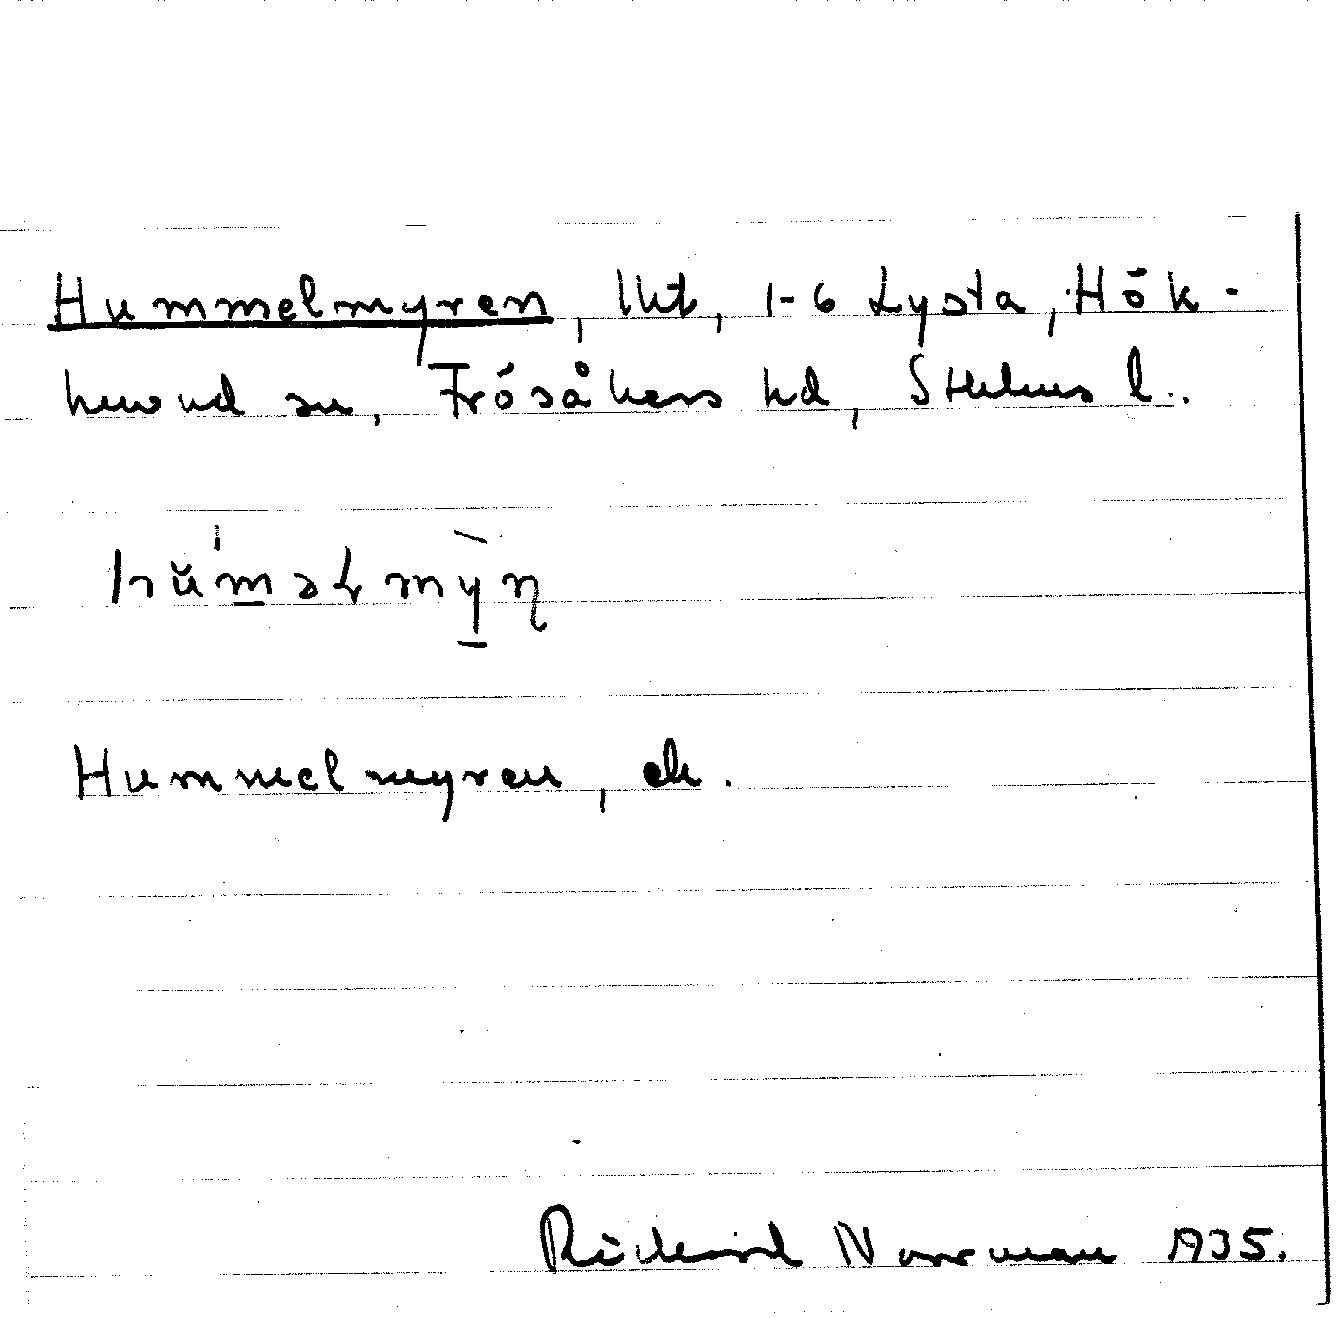 Hummelmyren, lht, 1-6 Lysta, Hök-
huvud sn, Frösåkers hd, Sthlms l.
Hummelmyren, ek.
Richard Norrman 1935.